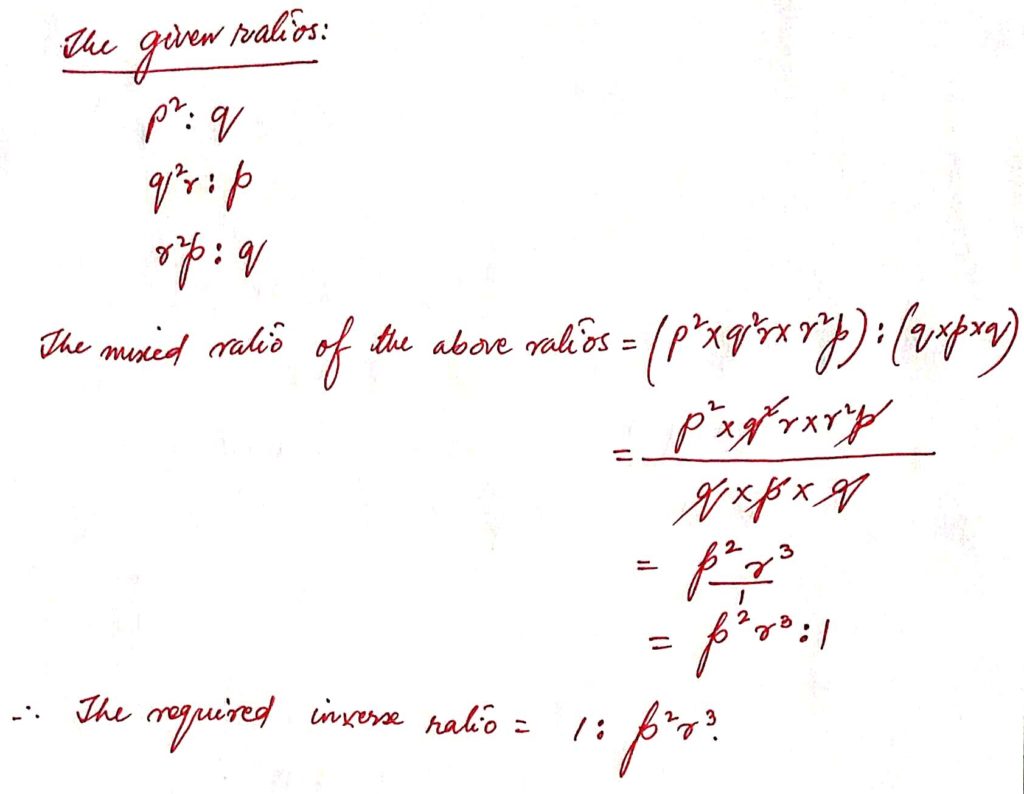 The given ratios:
p²: q
q²r: p
r²p: q
The mixed ratio of the above ratios = (p²×q²r×r²p):(q×p×q)
= p²×q²r×r²p / q×p×q
= p²r³ / 1
= p²r³:1
∴ The required inverse ratio = 1: p²r³.